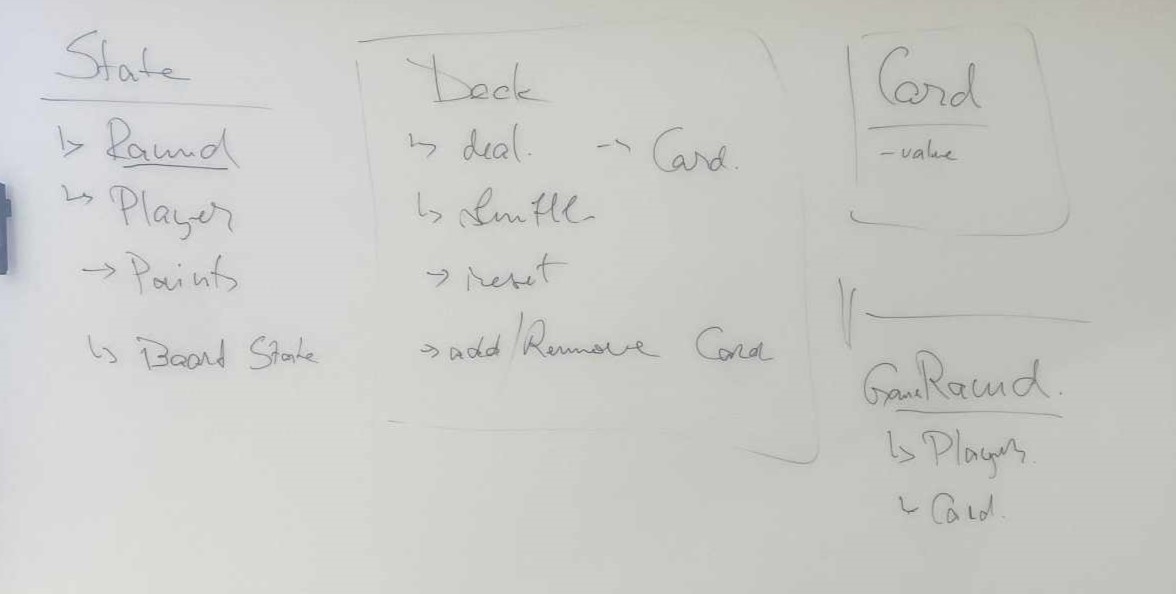 State
↳ Round
↳ Player
→ Points
↳ Board State
Deck
↳ deal. → Card.
↳ shuffle
→ reset
→ add/Remove Card
Card
- value
GameRound.
↳ Players.
↳ Card.